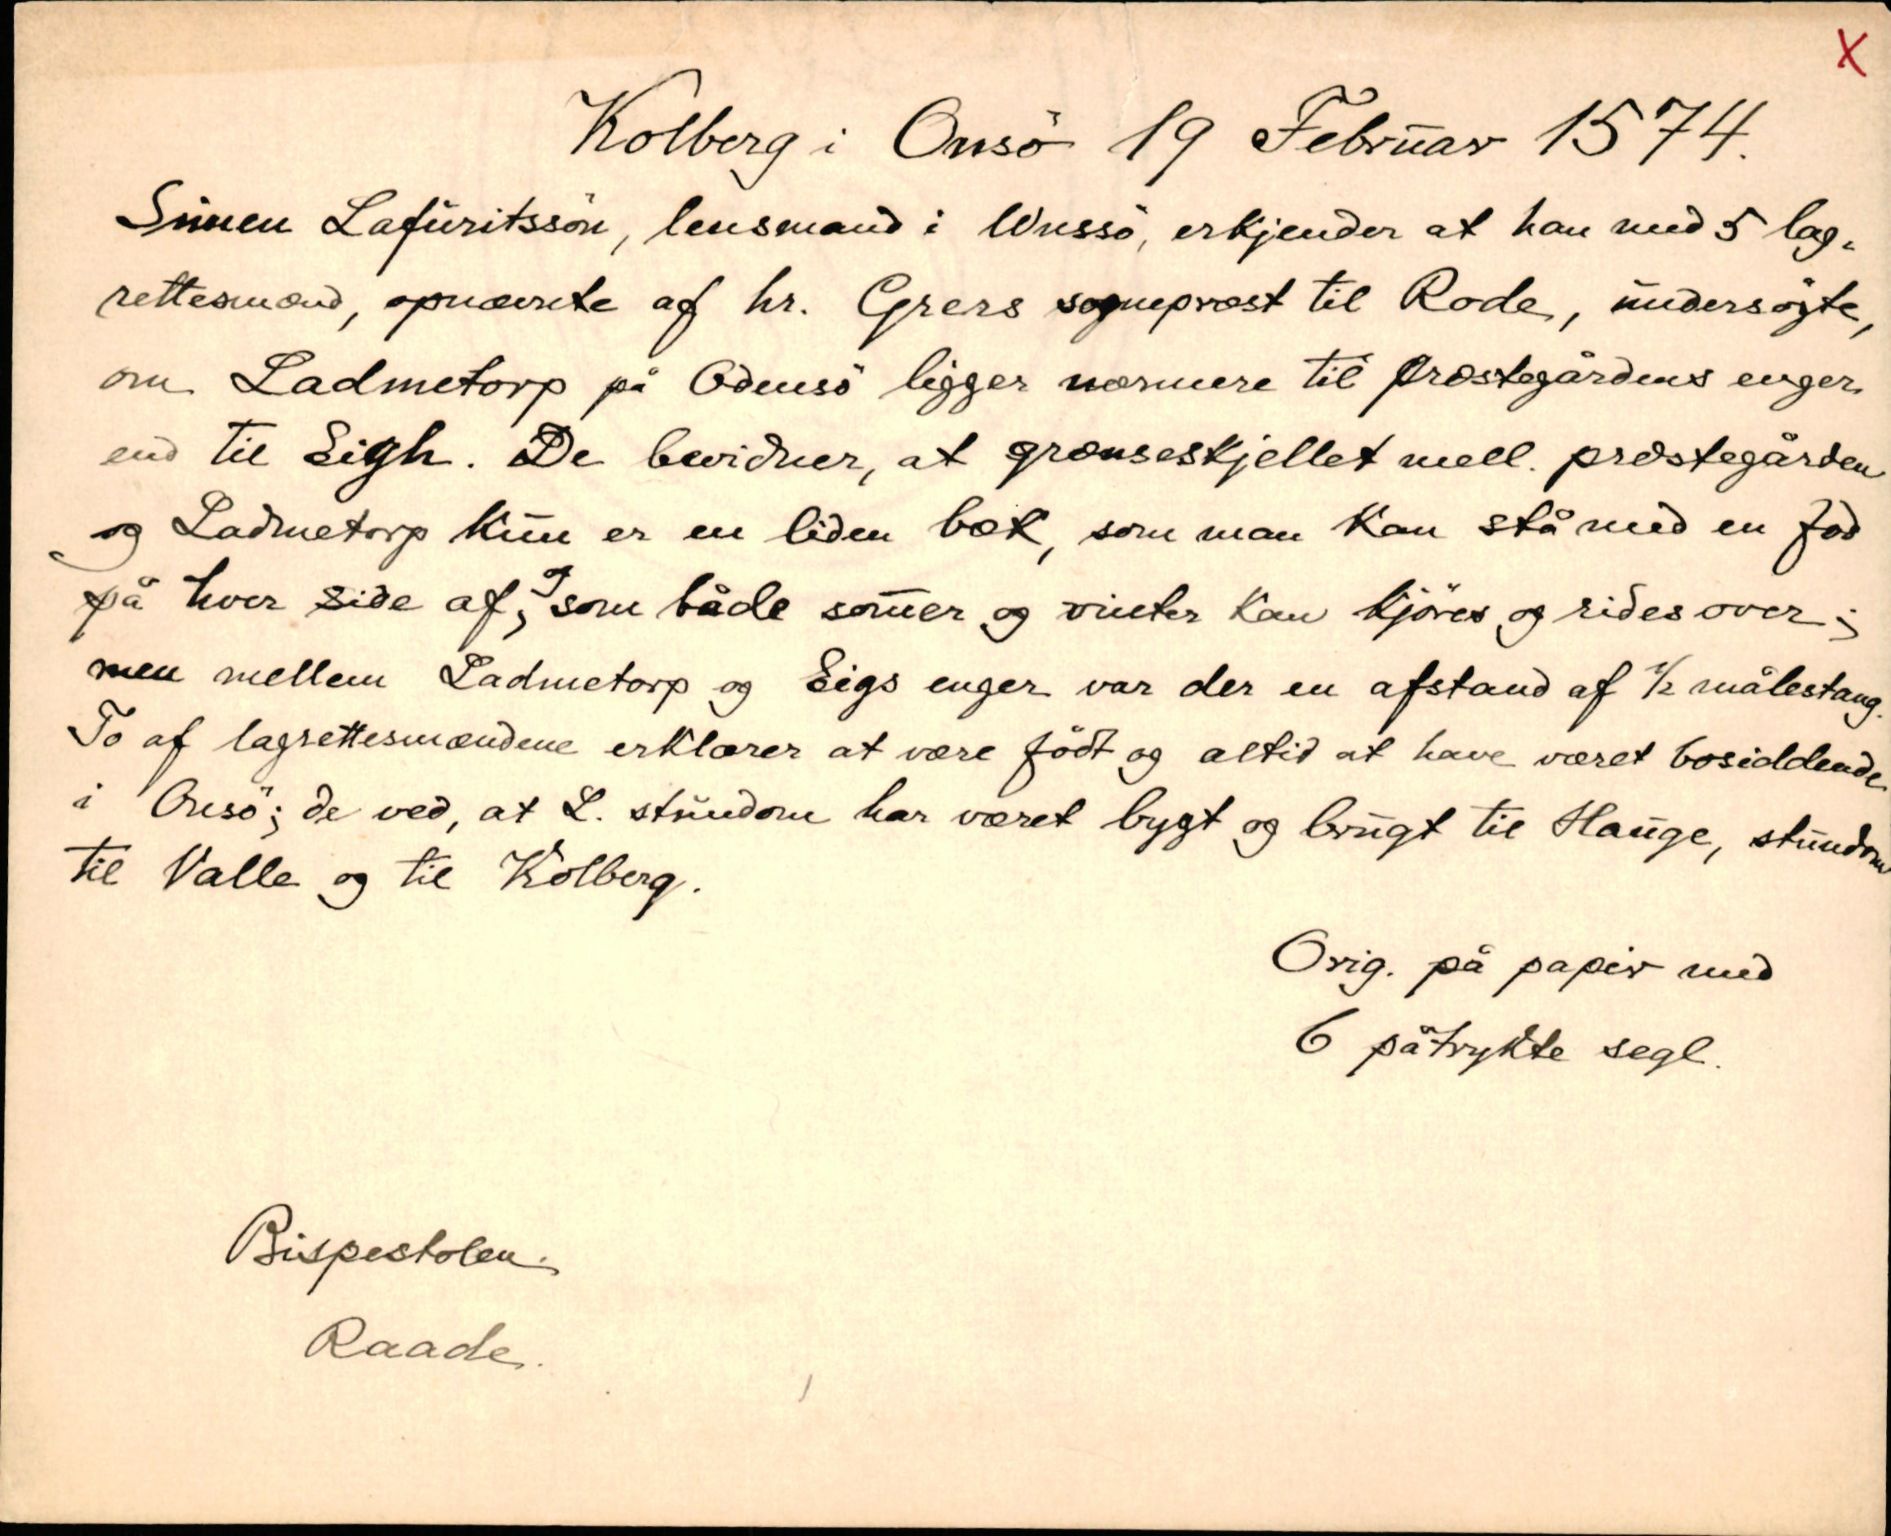 X
Kolberg i Onsö 19 Februar 1574.
Simen Lafuritssön, lensmand i Wnssö, erkjender at han med 5 lag-
rettesmænd, opnævnte af hr. Grers sogneprest til Rode, undersögte,
om Ladmetorp på Odensö ligger nærmere til Præstegårdens enger
end til Eigh. De bevidner, at grænseskjellet mell. præstegården
og Ladmetorp kun er en liden bæk, som man kan stå med en fod
på hver side af, og som både som̅er og vinter kan kjöres og rides over;
men mellem Ladmetorp og Eigs enger var der en afstand af 1/2 målestang.
To af lagrettesmændene erklærer at være födt og altid at have været bosiddende
i Onsö; de ved, at L. stundom har været bygt og brugt til Hauge, stundom
til Valle og til Kolberg.
Orig. på papir med
6 påtrykte segl.
Bispestolen.
Raade.